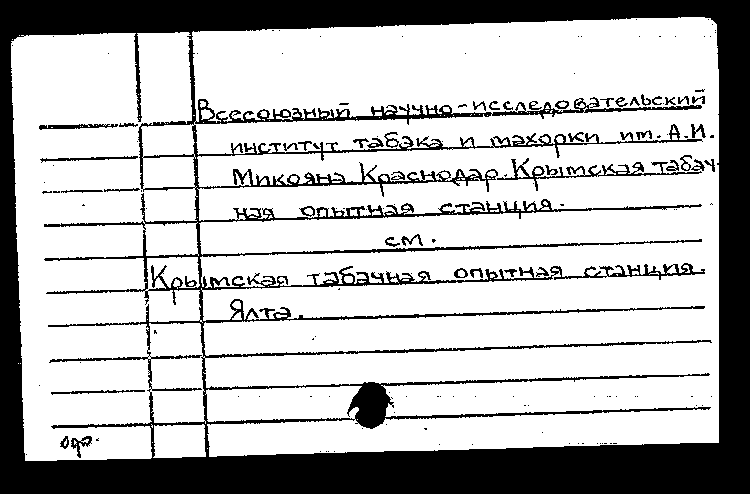 Всесоюзный научно-исследовательский
институт табака и махорки им. А.И.
Микояна Краснодар. Крымская табач-
ная опытная станция.
см.
Крымская табачная опытная станция.
Ялта.